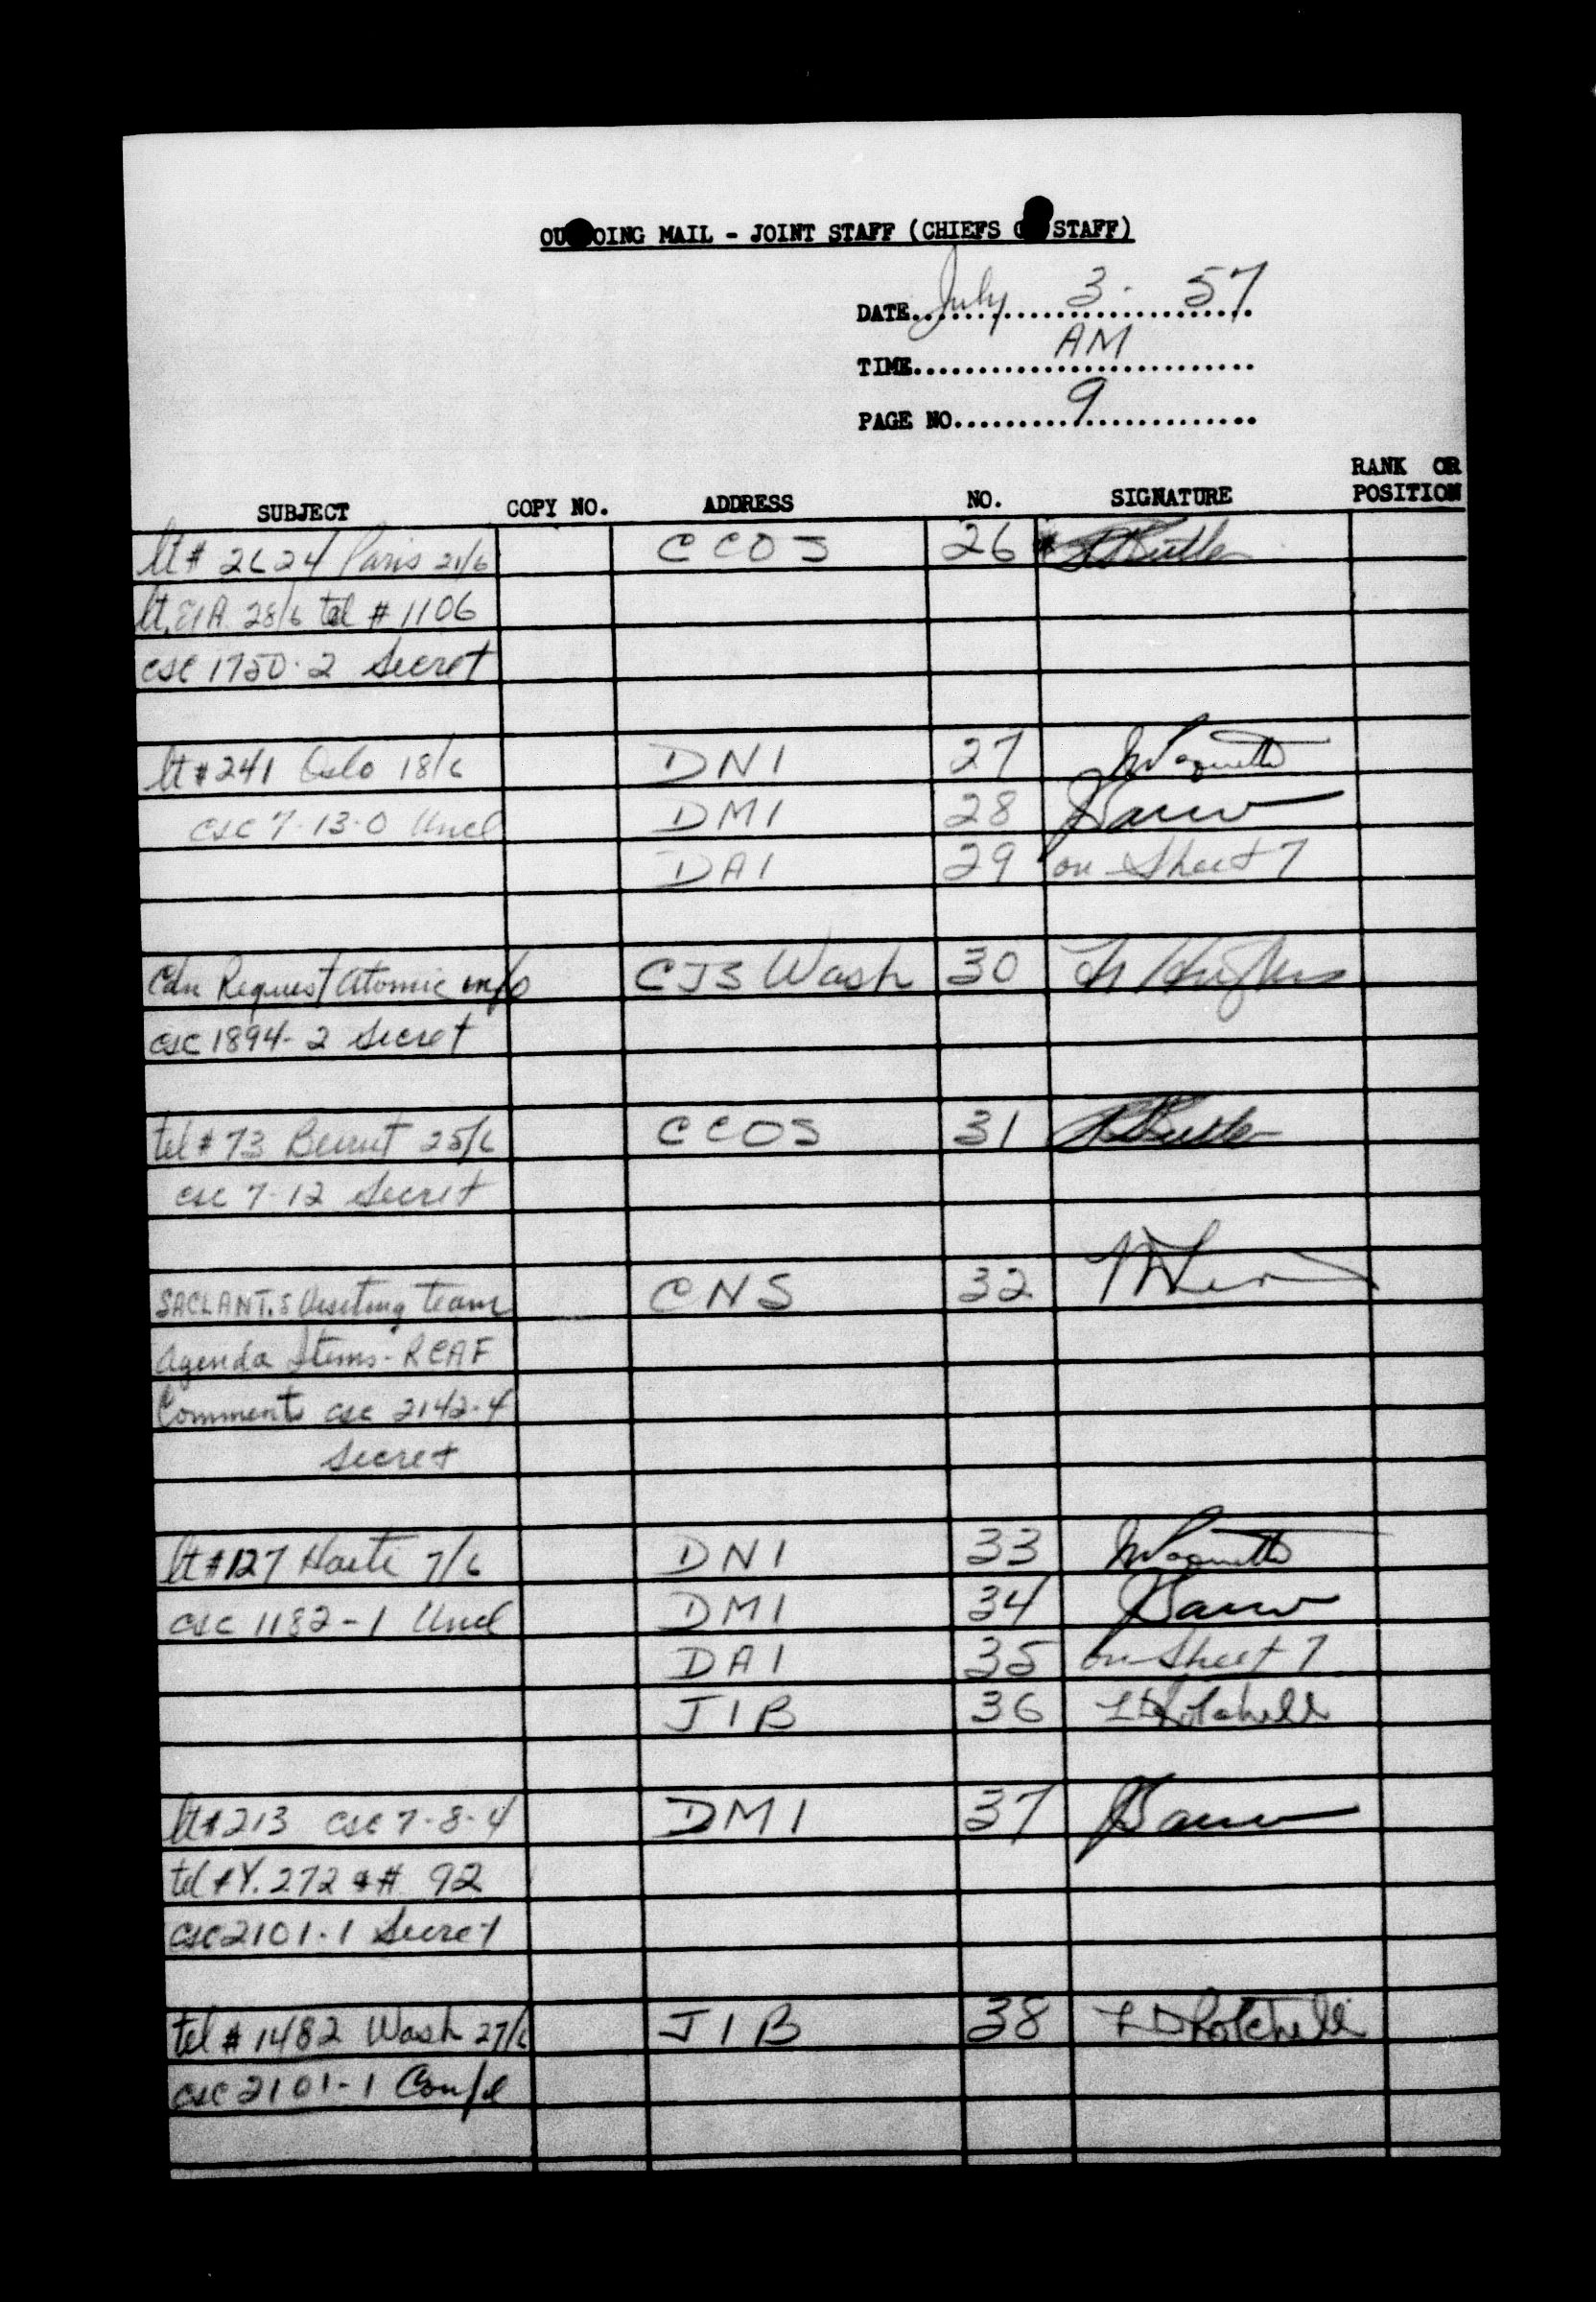 OU OING MAIL - JOINT STAFF (CHIEFS STAFF)
DATE July 3. 57
TIME AM
PAGE NO. 9
SUBJECT COPY NO. ADDRESS NO. SIGNATURE RANK OR POSITION
lt # 2624 Paris 21/6 CCOS 26 Butler
lt. E/A 28/6 tel # 1106
csc 1750-2 Secret
lt # 241 Oslo 18/6 DNI 27
csc 7-13-0 Uncl DMI 28
DAI 29 on Sheet 7
Cdn Request atomic info CJS Wash 30 Hughes
csc 1894-2 Secret
tel # 73 Beirut 25/6 CCOS 31 Butler
csc 7-12 Secret
SACLANT.S Visiting team CNS 32
agenda Items - RCAF
Comments csc 2142-4
Secret
lt # 127 Haiti 7/6 DNI 33
csc 1182-1 Uncl DMI 34
DAI 35 on Sheet 7
JIB 36
lt # 213 csc 7-8-4 DMI 37
tel # Y. 272 # 92
csc 2101-1 Secret
tel # 1482 Wash 27/6 JIB 38
csc 2101-1 Confd